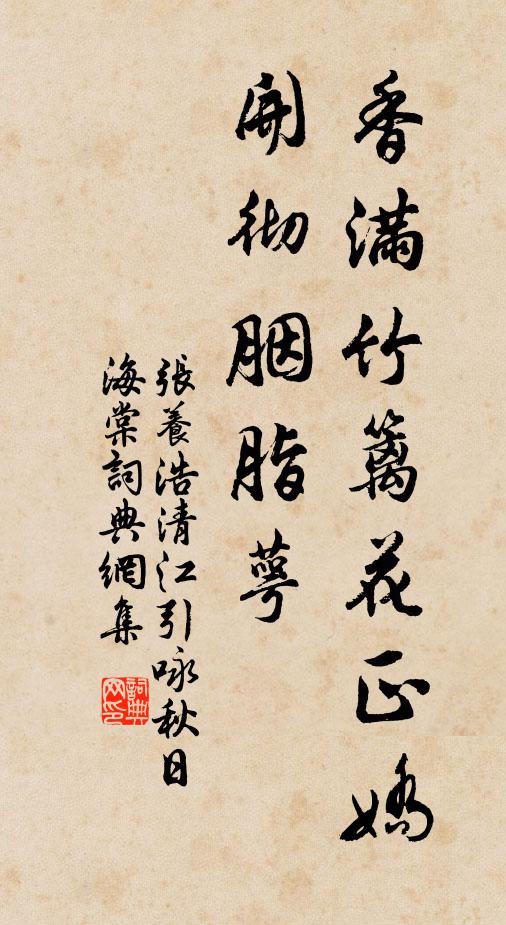 香滿竹籬花正嬌
開彻胭脂萼
張養浩清江引咏秋日
海棠詞典網集
詞典
网印